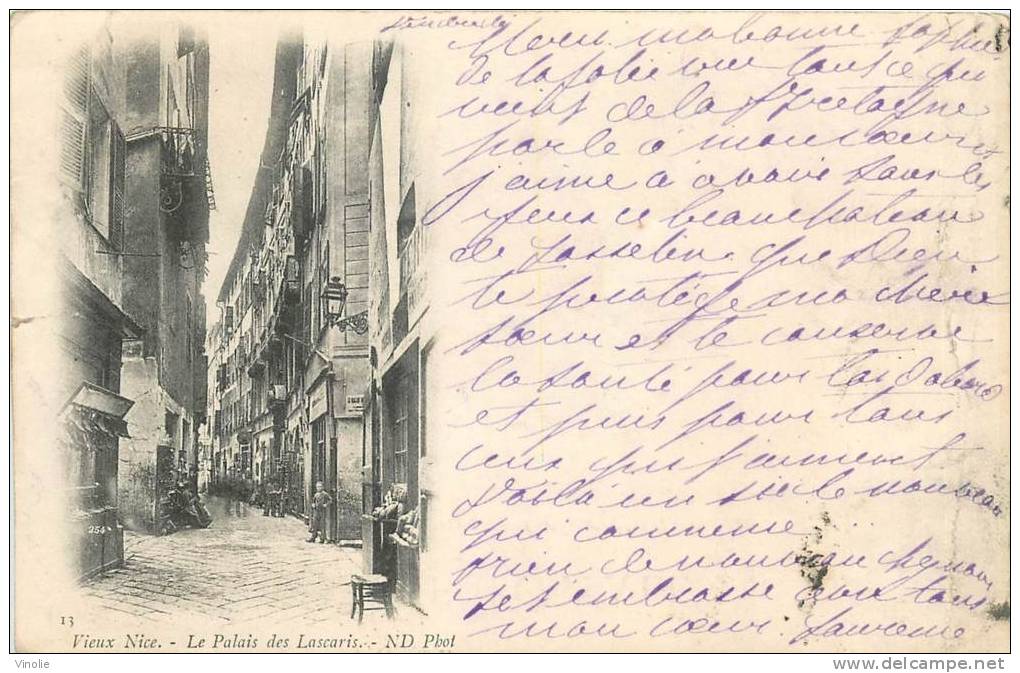 vendredi
Merci ma bonne Sophie
de la jolie vue tout ce qui
vient de la Bretagne
parle à mon cœur
j'aime à avoir sous les
yeux ce beau chateau
de Josselin que Dieu
te protège ma chère
sœur et te conserve
la santé pour toi d'abord
et puis pour tous
ceux qui t'aiment
Voilà un siècle nouveau
qui commence
rien de nouveau
je t'embrasse de tout
mon cœur.
254
13
Vieux Nice. - Le Palais des Lascaris. - ND Phot
Vinolie
http://www.delcampe.net